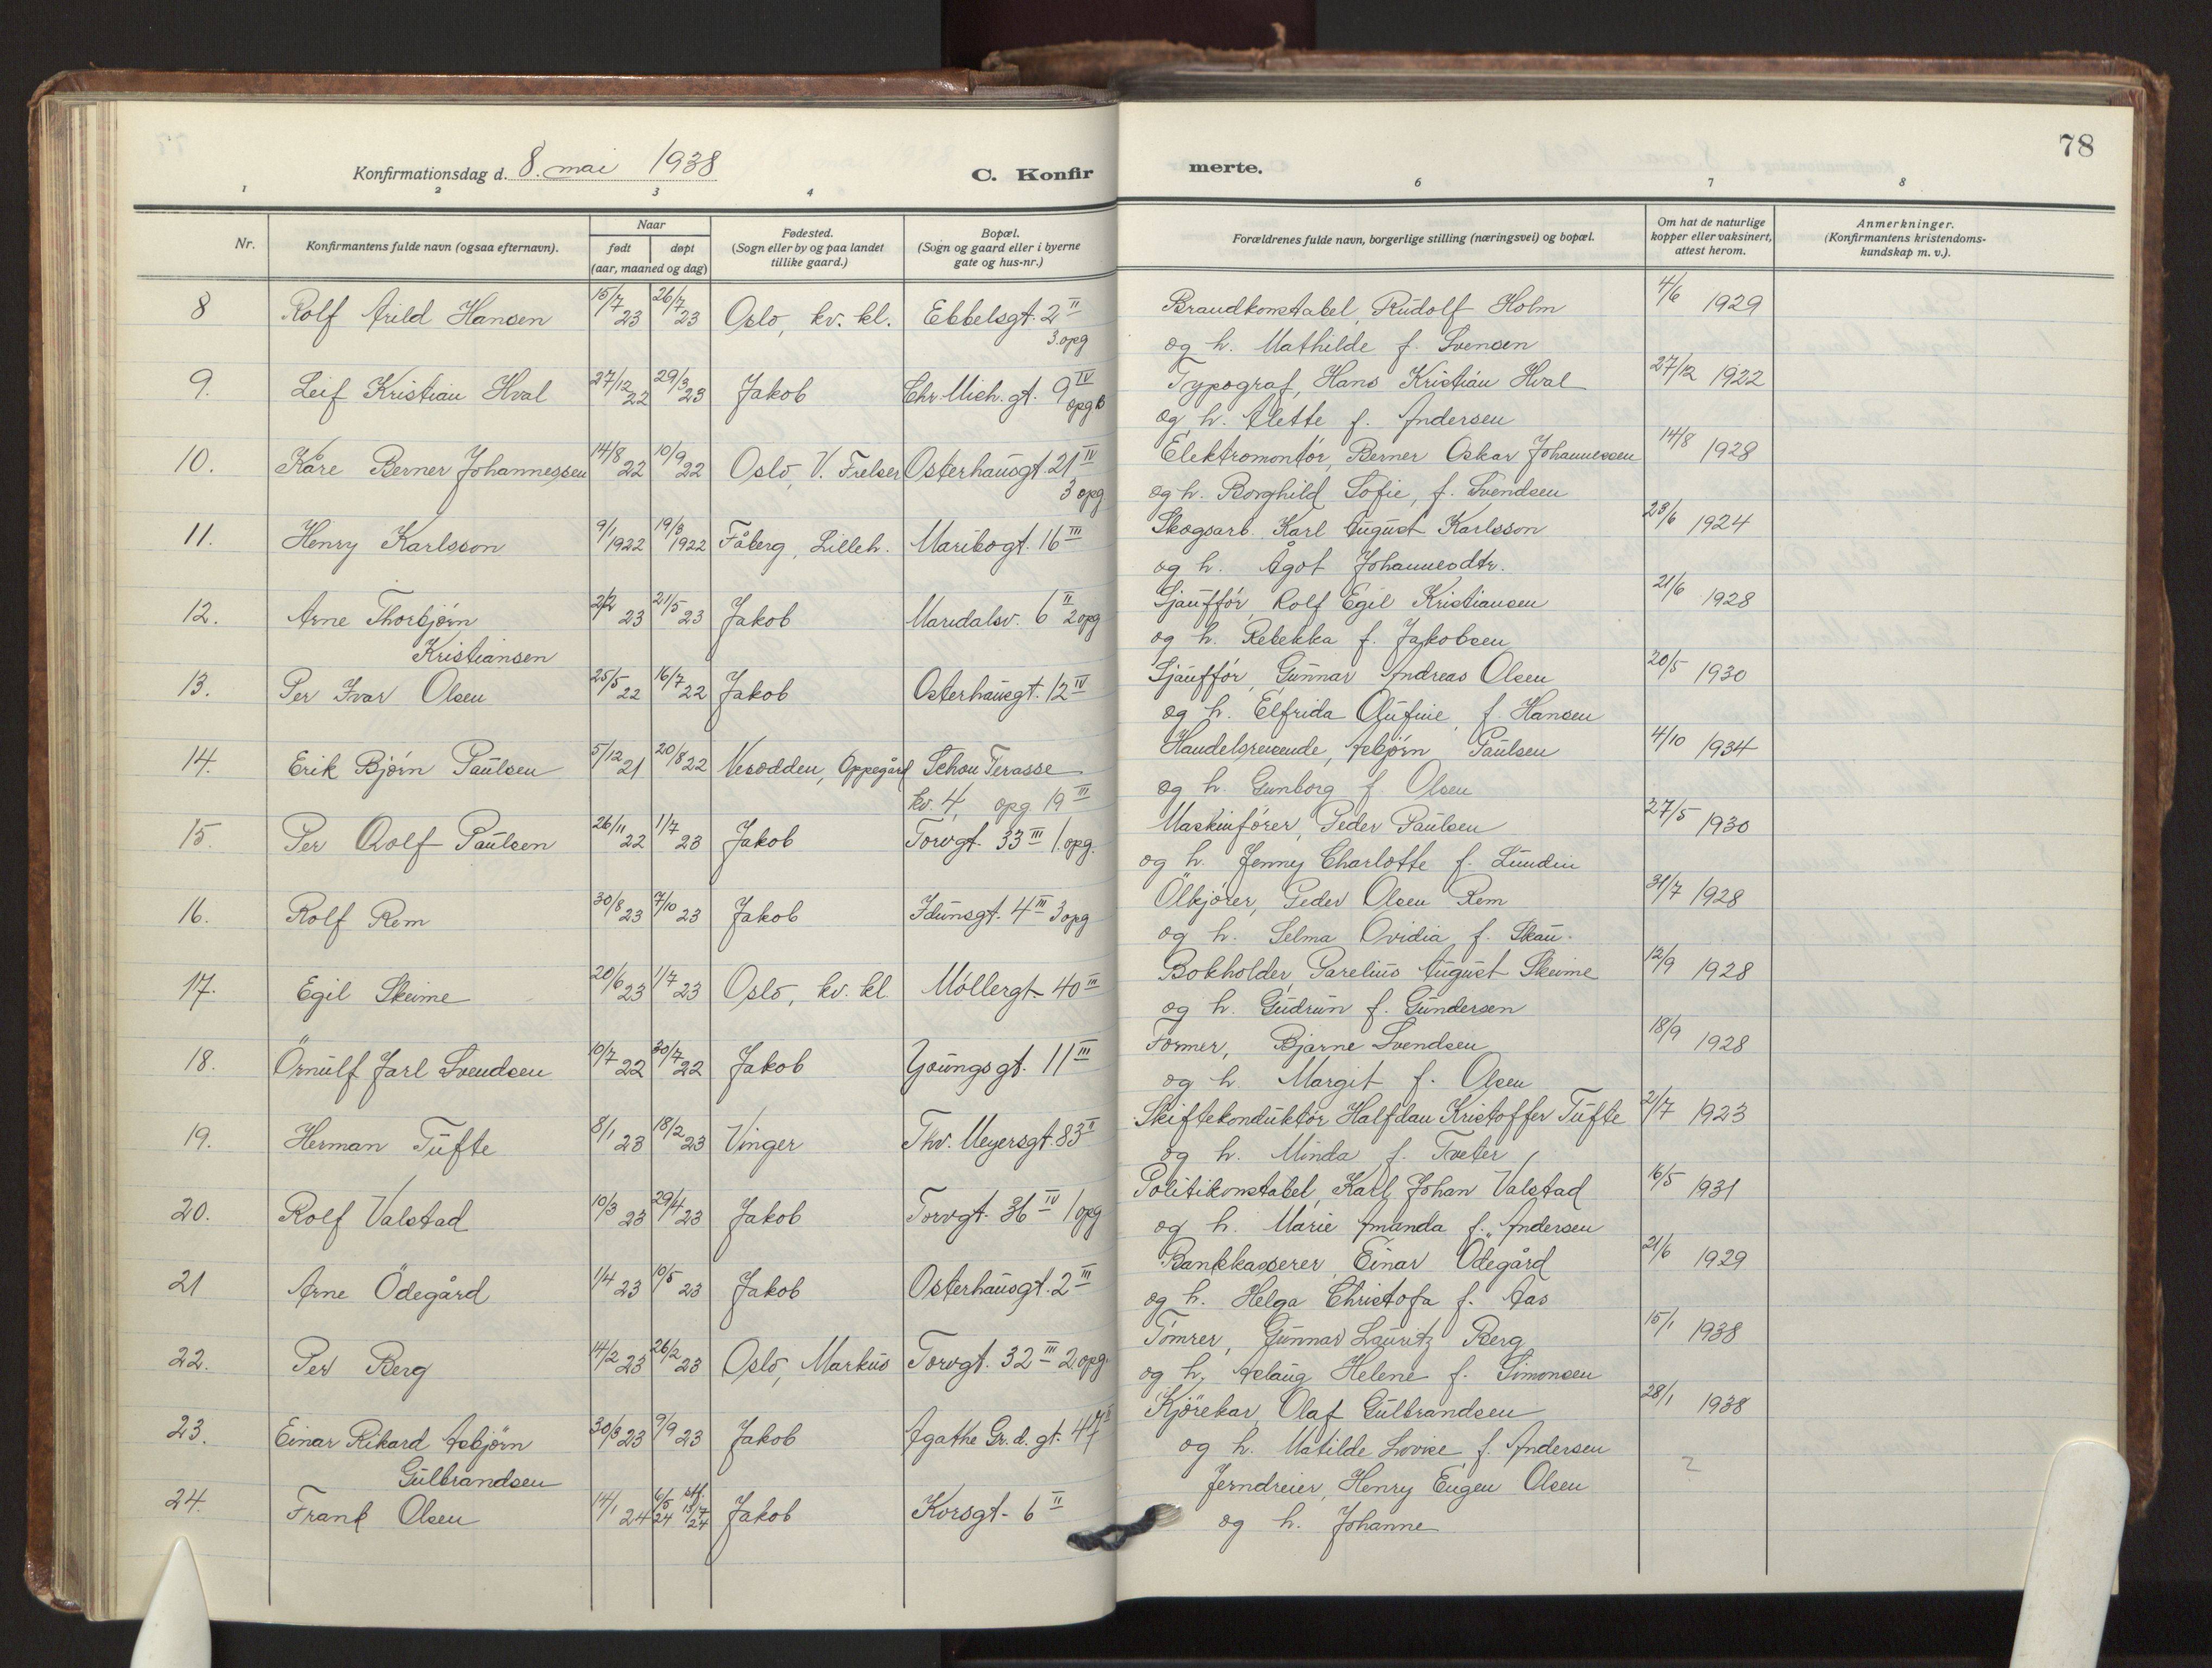 78
Konfirmationsdag d. 8. mai 1938
C. Konfir merte.
1 2 3 4 6 7 8
Nr.
Konfirmantens fulde navn (ogsaa efternavn).
Naar
født døpt
(aar, maaned og dag)
Fødested.
(Sogn eller by og paa landet
tillike gaard.)
Bopæl.
(Sogn og gaard eller i byerne
gate og hus-nr.)
Forældrenes fulde navn, borgerlige stilling (næringsvei) og bopæl.
Om hat de naturlige
kopper eller vaksinert,
attest herom.
Anmerkninger.
(Konfirmantens kristendoms-
kundskap m. v.).
8 Rolf Arild Hansen 15/7 23 26/7 23 Oslo, kv. kl. Ebbelsgt. 2 II
3. opg
Brandkonstabel, Rudolf Holm 4/6 1929
og h. Mathilde f. Svensen
9. Leif Kristian Hval 27/12 22 29/3 23 Jakob Chr. Mich. gt. 9 IV
opg B
Typograf, Hans Kristian Hval 27/12 1922
og h. Alette f. Andersen
10. Kåre Berner Johannessen 14/8 22 10/9 22 Oslo, V. Frelser Osterhausgt. 21 IV
3 opg.
Elektromontör, Berner Oskar Johannessen 14/8 1928
og h. Borghild Sofie, f. Svendsen
11. Henry Karlsson 9/1 1922 19/3 1922 Fåberg, Lilleh. Maribogt. 16 III
Skogsarb. Karl August Karlsson 23/6 1924
og h. Ågot Johannesdtr.
12. Arne Thorbjørn 2/2 23 21/5 23 Jakob Maridalsv. 6 II 2 opg
Kristiansen
Sjaufför, Rolf Egil Kristiansen 21/6 1928
og h. Rebekka f. Jakobsen
13. Per Ivar Olsen 25/5 22 16/7 22 Jakob Osterhausgt. 12 IV
Sjauffør, Gunnar Andreas Olsen 20/5 1930
og h. Elfrida Olufine, f. Hansen
14. Erik Bjørn Paulsen 5/12 21 20/8 22 Nesodden, Oppegård Schou Terasse
kv. 4, opg. 19 III
Handelsreisende, Asbjørn Paulsen 4/10 1934
og h. Gunborg f. Olsen
15. Per Rolf Paulsen 26/11 22 1/7 23 Jakob Torvgt. 33 III 1. opg.
Maskinfører, Peder Paulsen 27/5 1930
og h. Jenny Charlotte f. Lundin
16. Rolf Rem 30/8 23 7/10 23 Jakob Idunsgt. 4 III 3 opg
Ölkjører, Peder Olsen Rem 31/7 1928
og h. Selma Ovidia f. Skau.
17. Egil Skeime 20/6 23 1/7 23 Oslo, kv. kl. Möllergt. 40 III
Bokholder, Sarelius August Skeime 12/9 1928
og h. Gudrun f. Gundersen
18. Örnulf Jarl Svendsen 10/7 22 30/7 22 Jakob Youngsgt. 11 III
Former, Bjarne Svendsen 18/9 1928
og h. Margit f. Olsen
19. Herman Tufte 8/1 23 18/2 23 Vinger Thv. Meyersgt. 83 II
Skiftekonduktør Halfdan Kristoffer Tufte 2/7 1923
og h. Minda f. Tveter
20. Rolf Valstad 10/3 23 29/4 23 Jakob Torvgt. 36 IV 1 opg
Politikonstabel, Karl Johan Valstad 16/5 1931
og h. Marie Amanda f. Andersen
21 Arne Ödegård 1/4 23 10/5 23 Jakob Osterhausgt. 2 III
Bankkasserer, Einar Ödegård 21/6 1929
og h. Helga Christofa f. Aas
22. Per Berg 14/2 23 26/2 23 Oslo, Markus Torvgt. 32 III 2 opg.
Tömrer, Gunnar Lauritz Berg 15/1 1938
og h. Aslaug Helene f. Simonsen
23. Einar Rikard Asbjörn 30/3 23 9/9 23 Jakob Agathe Gr. d. gt. 44
Gulbrandsen
Kjørekar, Olaf Gulbrandsen 28/1 1938
og h. Matilde Lovise f. Andersen
24. Frank Olsen 14/1 24 6/5 24 st. 13/7 24 Jakob Korsgt. 6 II
Jerndreier, Henry Eugen Olsen ?
og h. Johanne